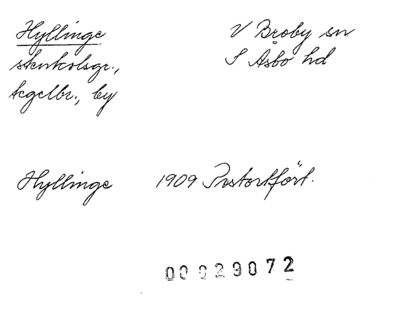 Hyllinge
stenkolsgr.,
tegelbr., by
V Broby sn
S Åsbo hd
Hyllinge 1909 Postortför​t.
00029072